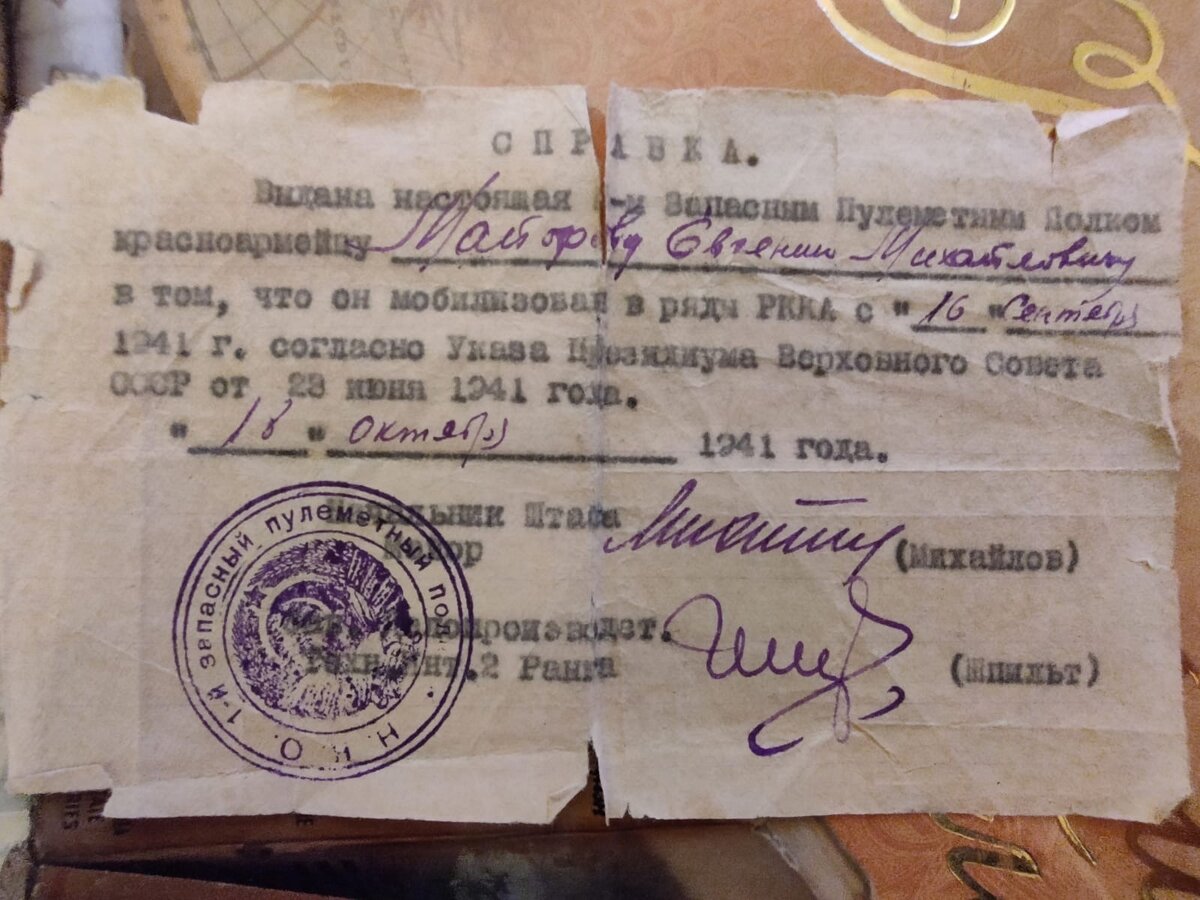 СПРАВКА.
Выдана настоящая 1-м Запасным Пулеметным Полком
красноармейцу Майорову Евгению Михайловичу
в том, что он мобилизован в ряды РККА с "16" сентября
1941 г. согласно Указа Президиума Верховного Совета
СССР от 23 июня 1941 года.
"18" октября 1941 года.
Начальник Штаба
Майор (Михайлов)
Делопроизводст.
Техн. Инт.2 Ранга (Шпильт)
Н.К.О. 1-й запасный пулеметный полк